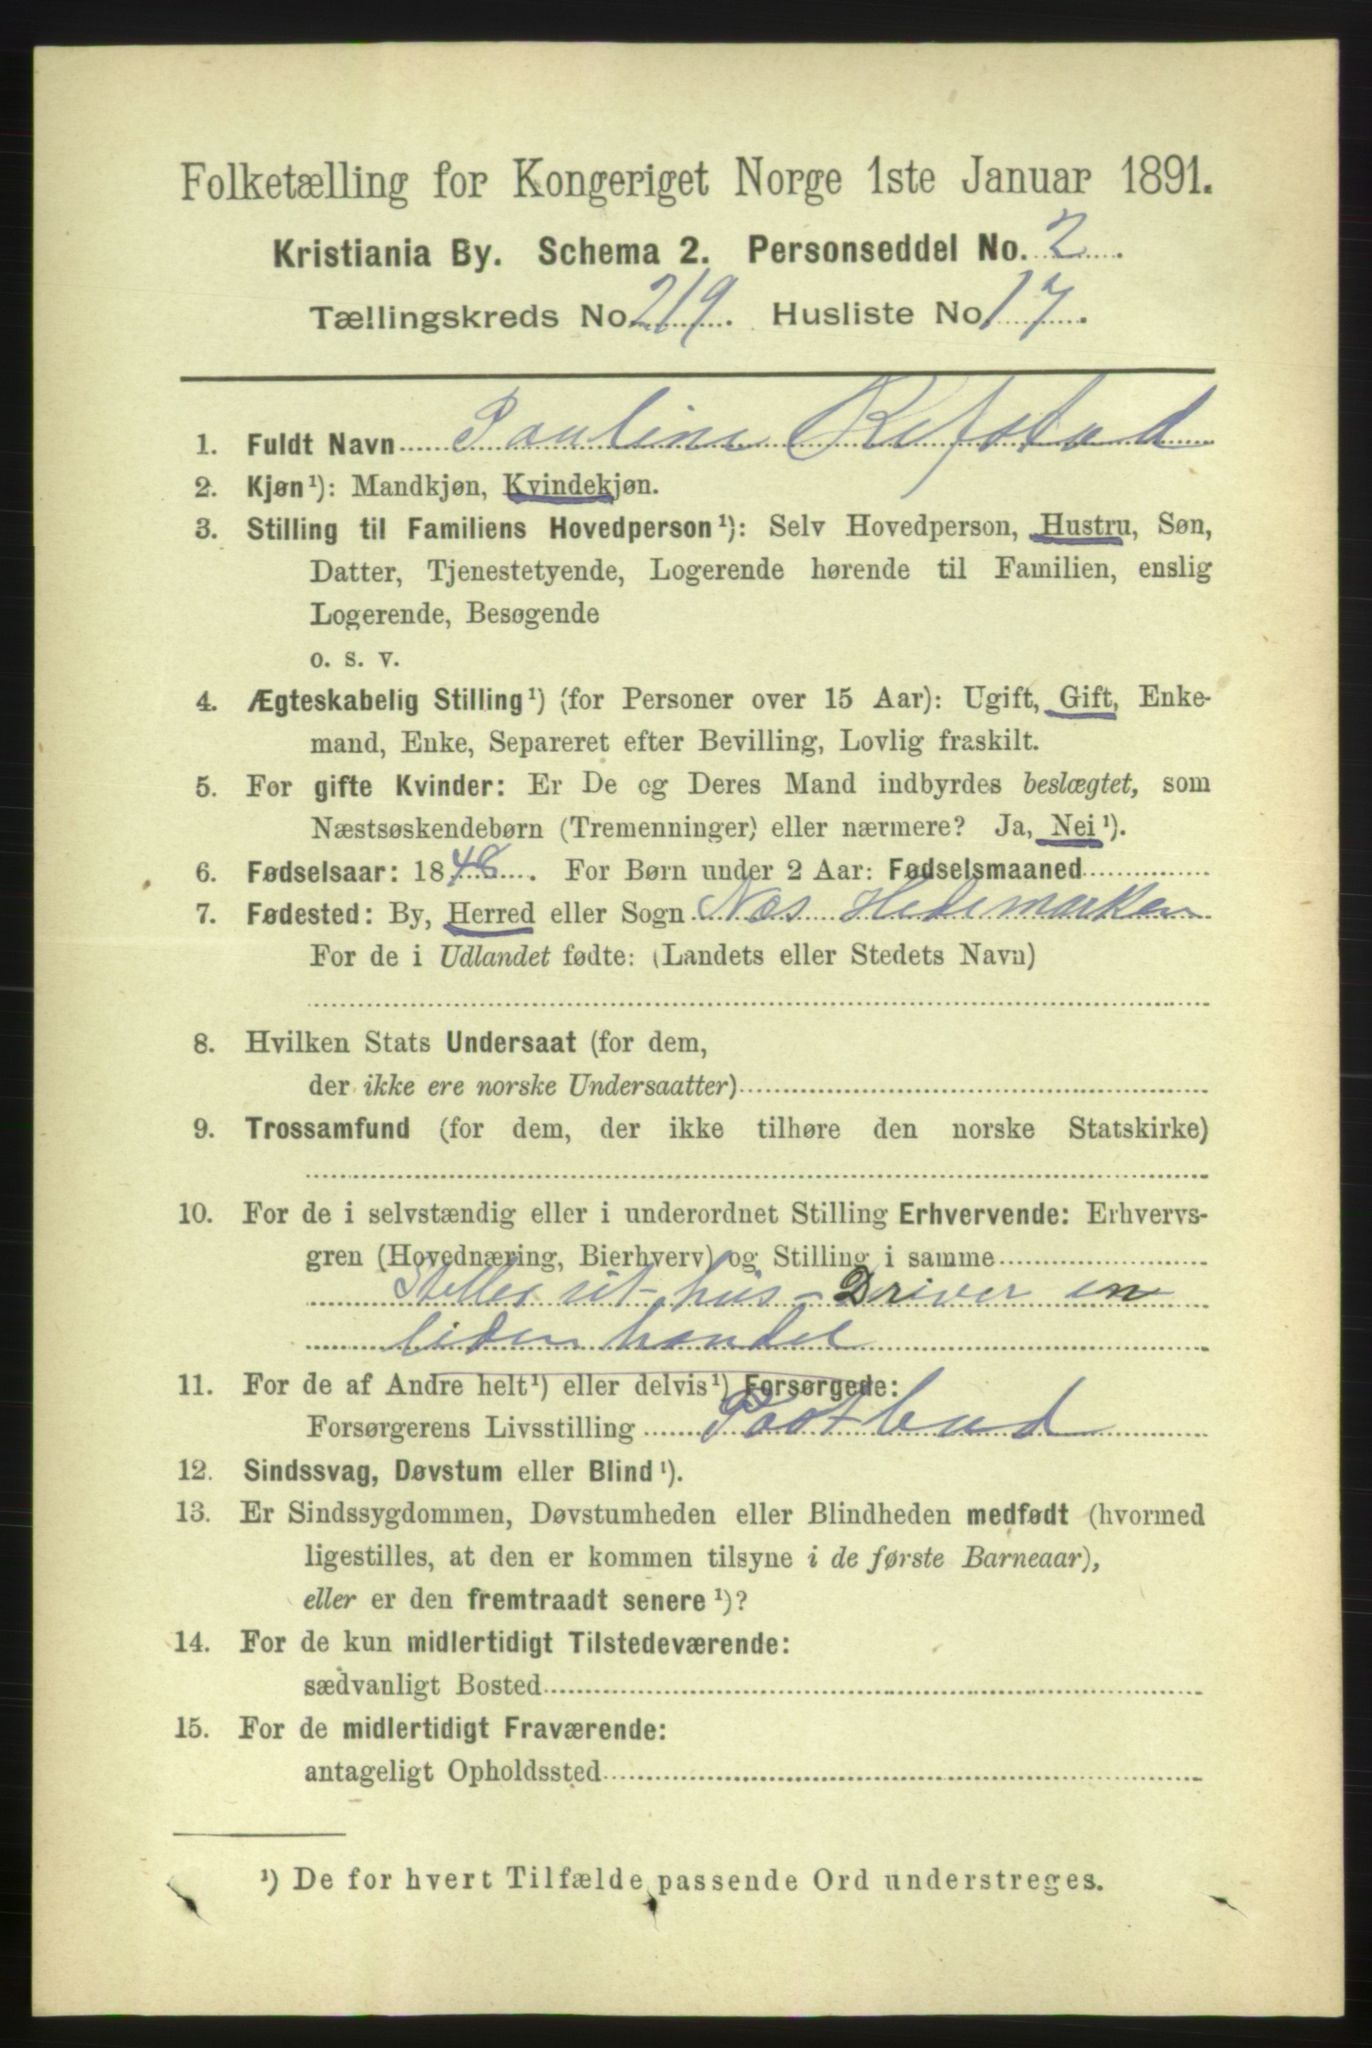 Folketælling for Kongeriget Norge 1ste Januar 1891.
Kristiania By. Schema 2. Personseddel No. 2.
Tællingskreds No. 219. Husliste No. 17.
1. Fuldt Navn Pauline Refstad
2. Kjøn¹): Mandkjøn, Kvindekjøn.
3. Stilling til Familiens Hovedperson¹): Selv Hovedperson, Hustru, Søn,
Datter, Tjenestetyende, Logerende hørende til Familien, enslig
Logerende, Besøgende
o. s. v.
4. Ægteskabelig Stilling¹) (for Personer over 15 Aar): Ugift, Gift, Enke-
mand, Enke, Separeret efter Bevilling, Lovlig fraskilt.
5. For gifte Kvinder: Er De og Deres Mand indbyrdes beslægtet, som
Næstsøskendebørn (Tremenninger) eller nærmere? Ja, Nei¹).
6. Fødselsaar: 1848. For Børn under 2 Aar: Fødselsmaaned
7. Fødested: By, Herred eller Sogn Næs Hedemarken
For de i Udlandet fødte: (Landets eller Stedets Navn)
8. Hvilken Stats Undersaat (for dem,
der ikke ere norske Undersaatter)
9. Trossamfund (for dem, der ikke tilhøre den norske Statskirke)
10. For de i selvstændig eller i underordnet Stilling Erhvervende: Erhvervs-
gren (Hovednæring, Bierhverv) og Stilling i samme
Steller sit hus - Driver en
liden handel
11. For de af Andre helt¹) eller delvis¹) Forsørgede:
Forsørgerens Livsstilling Postbud
12. Sindssvag, Døvstum eller Blind¹).
13. Er Sindssygdommen, Døvstumheden eller Blindheden medfødt (hvormed
ligestilles, at den er kommen tilsyne i de første Barneaar),
eller er den fremtraadt senere¹)?
14. For de kun midlertidigt Tilstedeværende:
sædvanligt Bosted
15. For de midlertidigt Fraværende:
antageligt Opholdssted
¹) De for hvert Tilfælde passende Ord understreges.